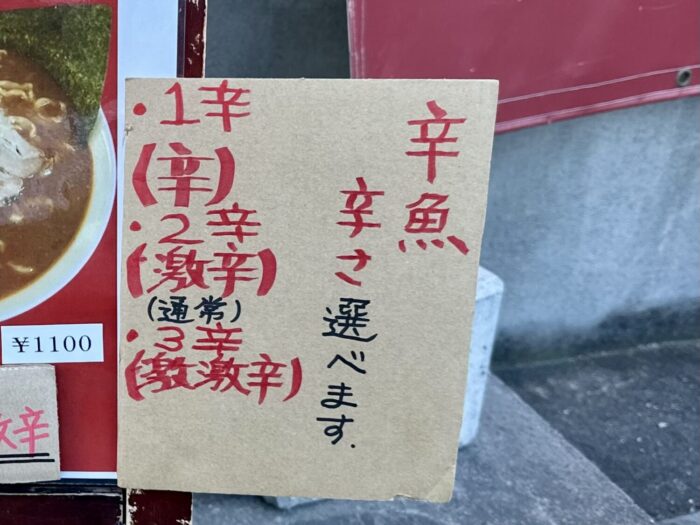 辛魚
辛さ選べます.
・1辛
(辛)
・2辛
(激辛)
(通常)
・3辛
(激激辛)
¥1100
激辛